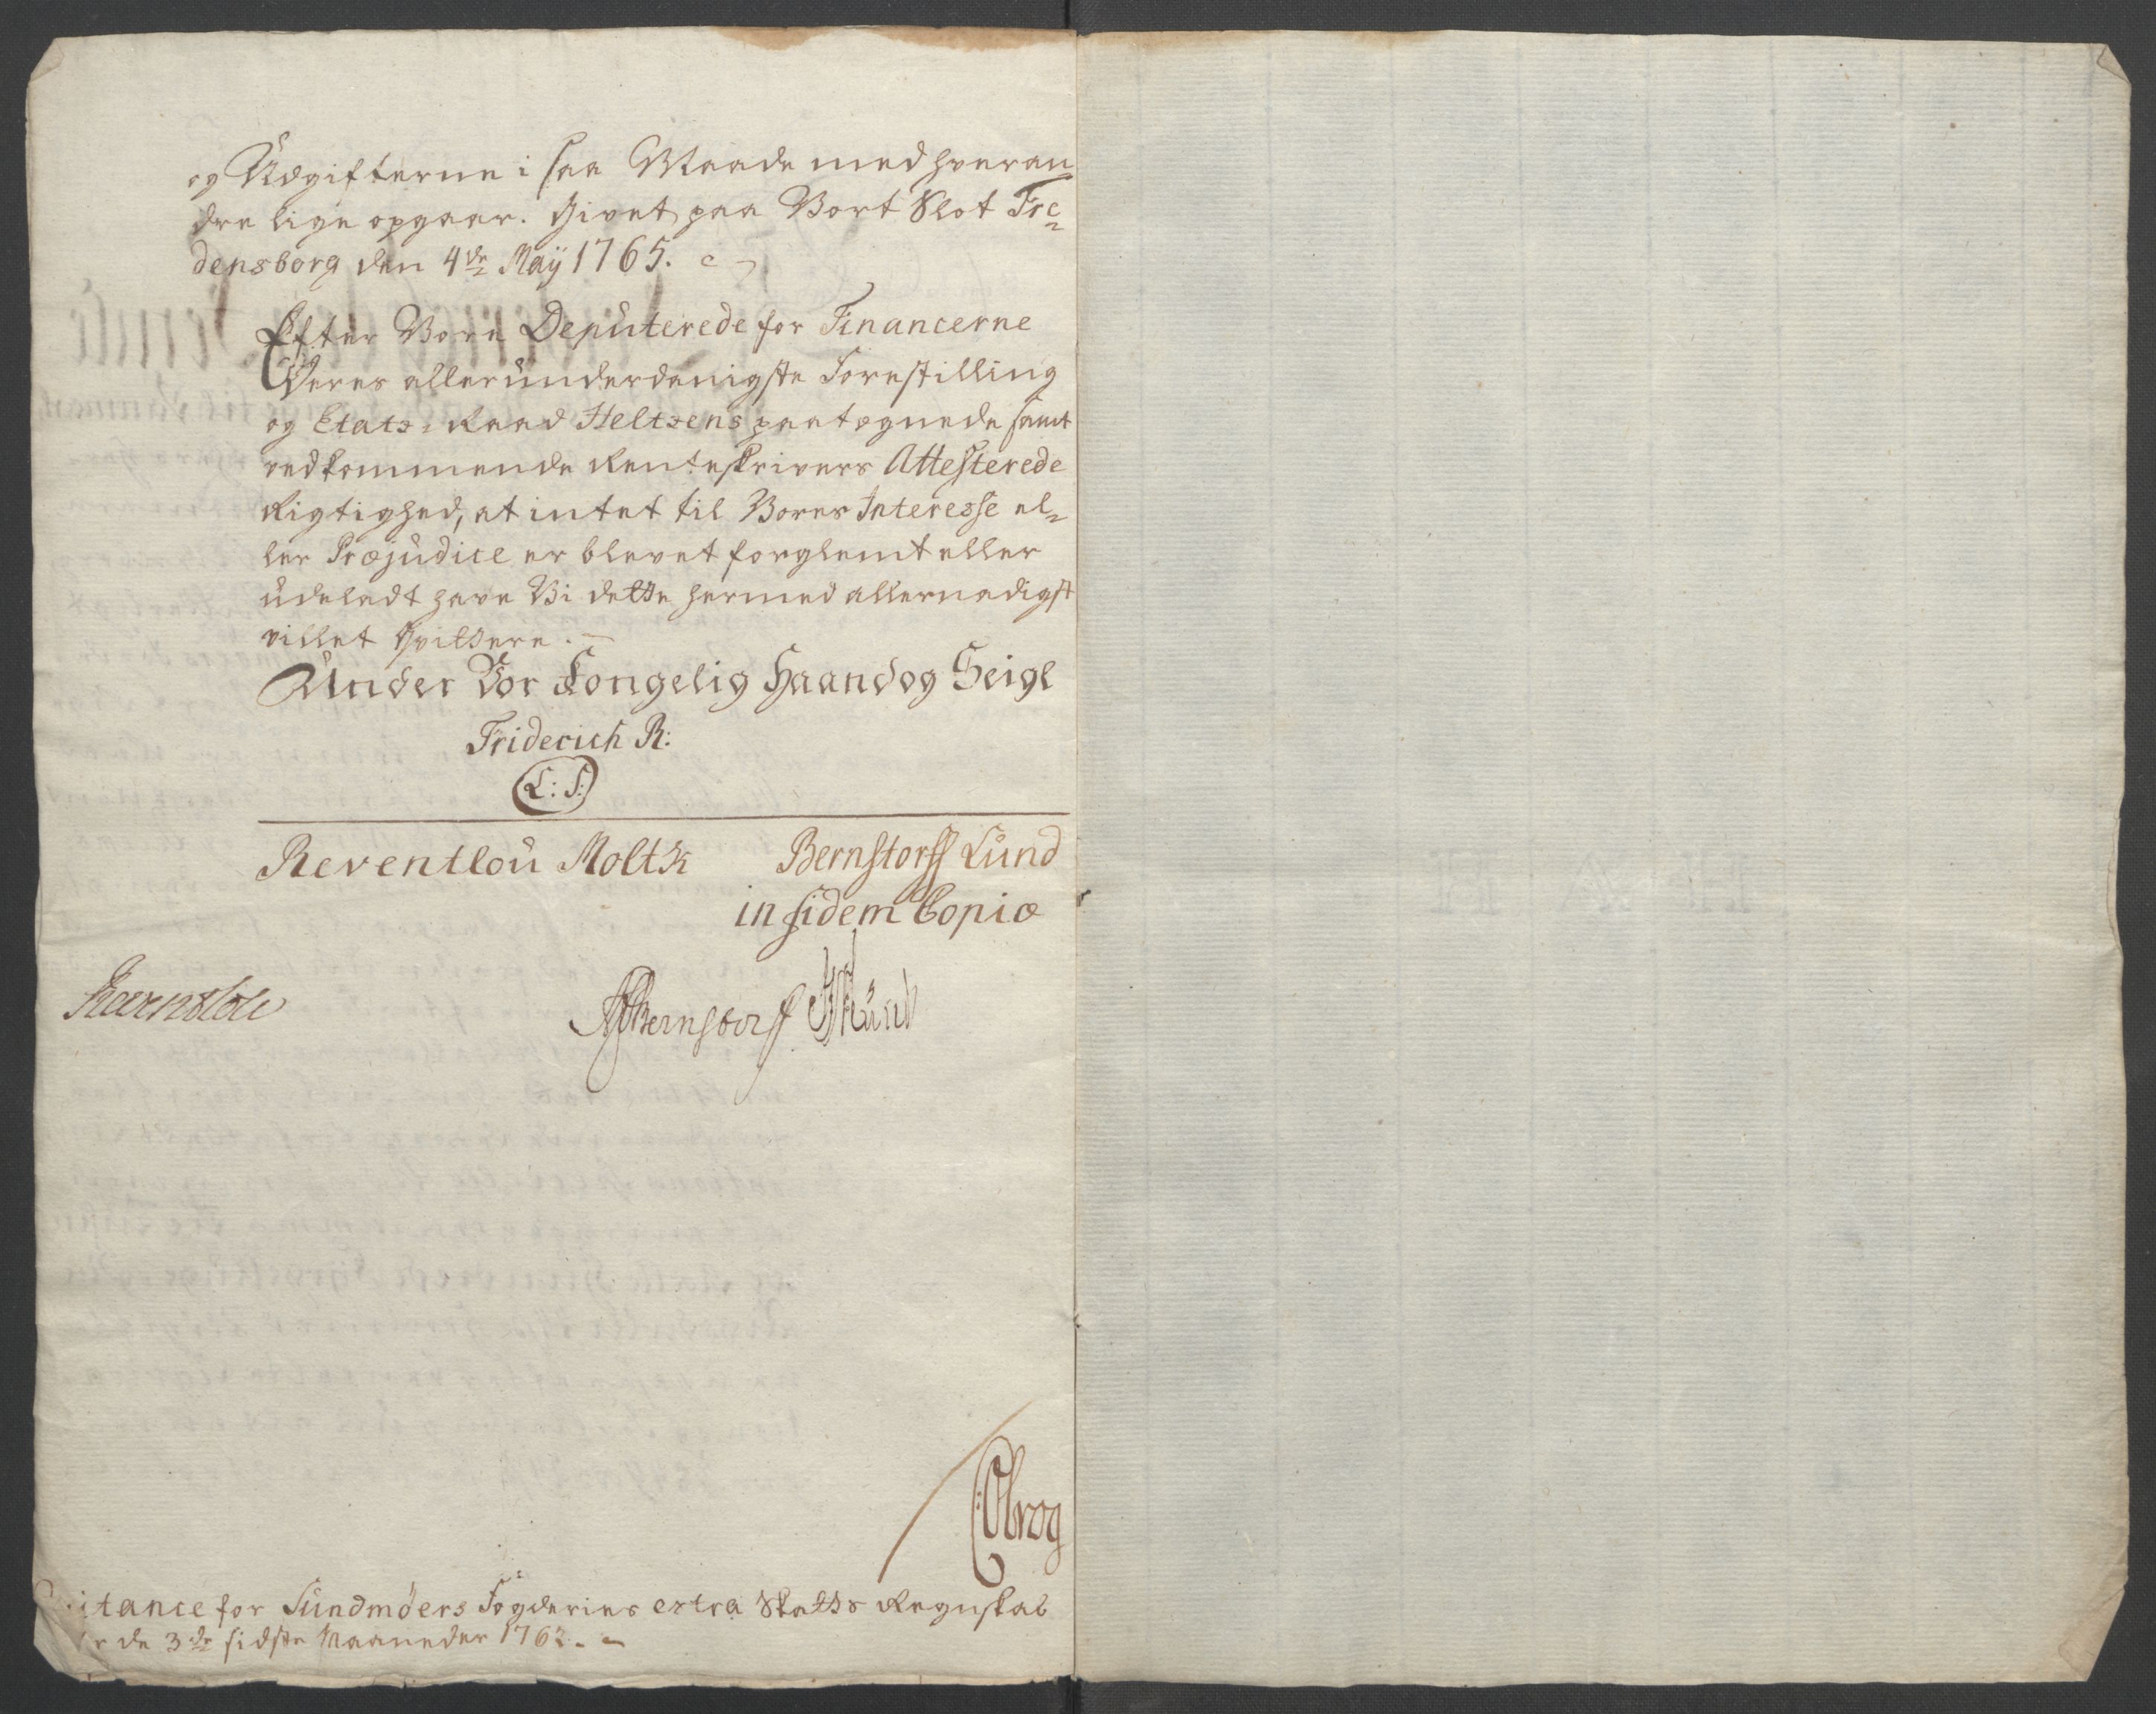 og Udgifterne i saa Maade med hveran=
dre lige opgaar. Givet paa Vort Slot Fre=
densborg den 4de Maÿ 1765.
Efter Vore Deputerede for Financerne
Deres allerunderdanigste Forestilling
og Etats-Raad Heltzens paategnede samt
vedkommende Renteskrivers Attesterede
Rigtighed, at intet til Vores Interesse el=
ler Præjudice er blevet forglemt eller
udeladt have Vi dette hermed allernadigst
villet qvittere.
Under Vor Kongelig Haand og Seigl
Friderich R:
L: S:
Reventlou Moltk Bernstorff Lund
in fidem Copiæ
Bernstorff Lund
itance for Sundmöers Fogderies extra Skatts Regnskab
de 3de sidste Maaneder 176